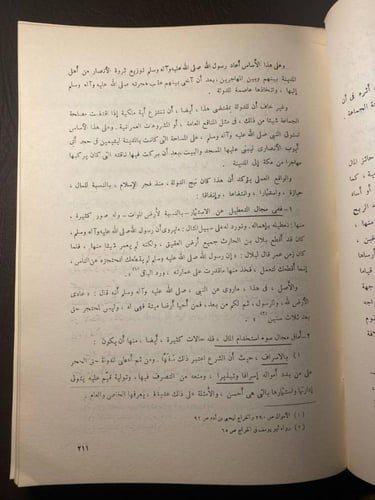 وعلى هذا الأساس أعاد رسول الله صلى الله عليه وآله وسلم توزيع ثروة الأنصار من أهل
المدينة بينهم وبين المهاجرين، بعد أن آخى بينهم عقب هجرته صلى الله عليه وآله وسلم
إليها، واتخاذها عاصمة للدولة.
وغير خاف أن للدولة بمقتضى هذا، أيضا، أن تنتزع أية ملكية إذا اقتضت مصلحة
الجماعة شيئا من ذلك، فى مثل المنافع العامة، أو المشروعات العمرانية. وعلى هذا الأساس
استولى النبى صلى الله عليه وآله وسلم، على المساحة التى كانت بالمدينة ليتيمين فى حجر أبى
أيوب الأنصارى ليبنى عليها المسجد والبيت، بعد أن بركت فيها ناقته التى كان يركبها
مهاجرا من مكة إلى المدينة.
والواقع العملى يؤكد أن هذا كان نهج الدولة، منذ فجر الإسلام، بالنسبة للمال،
حيازة، واستثمارا، وانتفاعا، وإنفاقا:
١- ففى مجال التعطيل عن الاستثمار- بالنسبة لأرض الموات- وله صور كثيرة،
منها: تعطيله بإهماله. ونورد له على سبيل المثال: ماروى أن رسول الله صلى الله عليه وآله وسلم،
كان قد أقطع بلال بن الحارث جميع أرض العقيق، ولكنه لم يعمر شيئا منها، فلما
كان زمن عمر قال لبلال: «إن رسول الله صلى الله عليه وآله وسلم لم يقطعك لتحتجزه عن الناس،
إنما أقطعك لتعمل، فخذ منها ماقدرت على عمارته، ورد الباقى»(١).
والأصل، فى هذا، ماروى عن النبى، صلى الله عليه وآله وسلم أنه قال: «عادى
الأرض لله، وللرسول، ثم لكم من بعد، فمن أحيا أرضا ميتة فهى له، وليس لمحتجر حق
بعد ثلاث سنين»(٢).
٢- أما فى مجال سوء استخدام المال، فله حالات كثيرة، أيضا، منها أن يكون:
(١) بالإسراف، حيث أن الشرع اعتبر ذلك سفها. ومن ثم أعطى للدولة حق الحجر
على من يبدد أمواله إسرافا وتبذيرا، ومنعه من التصرف فيها، وتولية قيم عليه يتولى
إدارتها واستثمارها بالتى هى أحسن، والأمثلة على ذلك عديدة، يعرفها الخاص والعام.
(١) الأموال ص ٢٩٠ والخراج ليحيى بن آدم ص ٩٣
(٢) رواه أبو يوسف فى الخراج ص ٦٥
٢١١